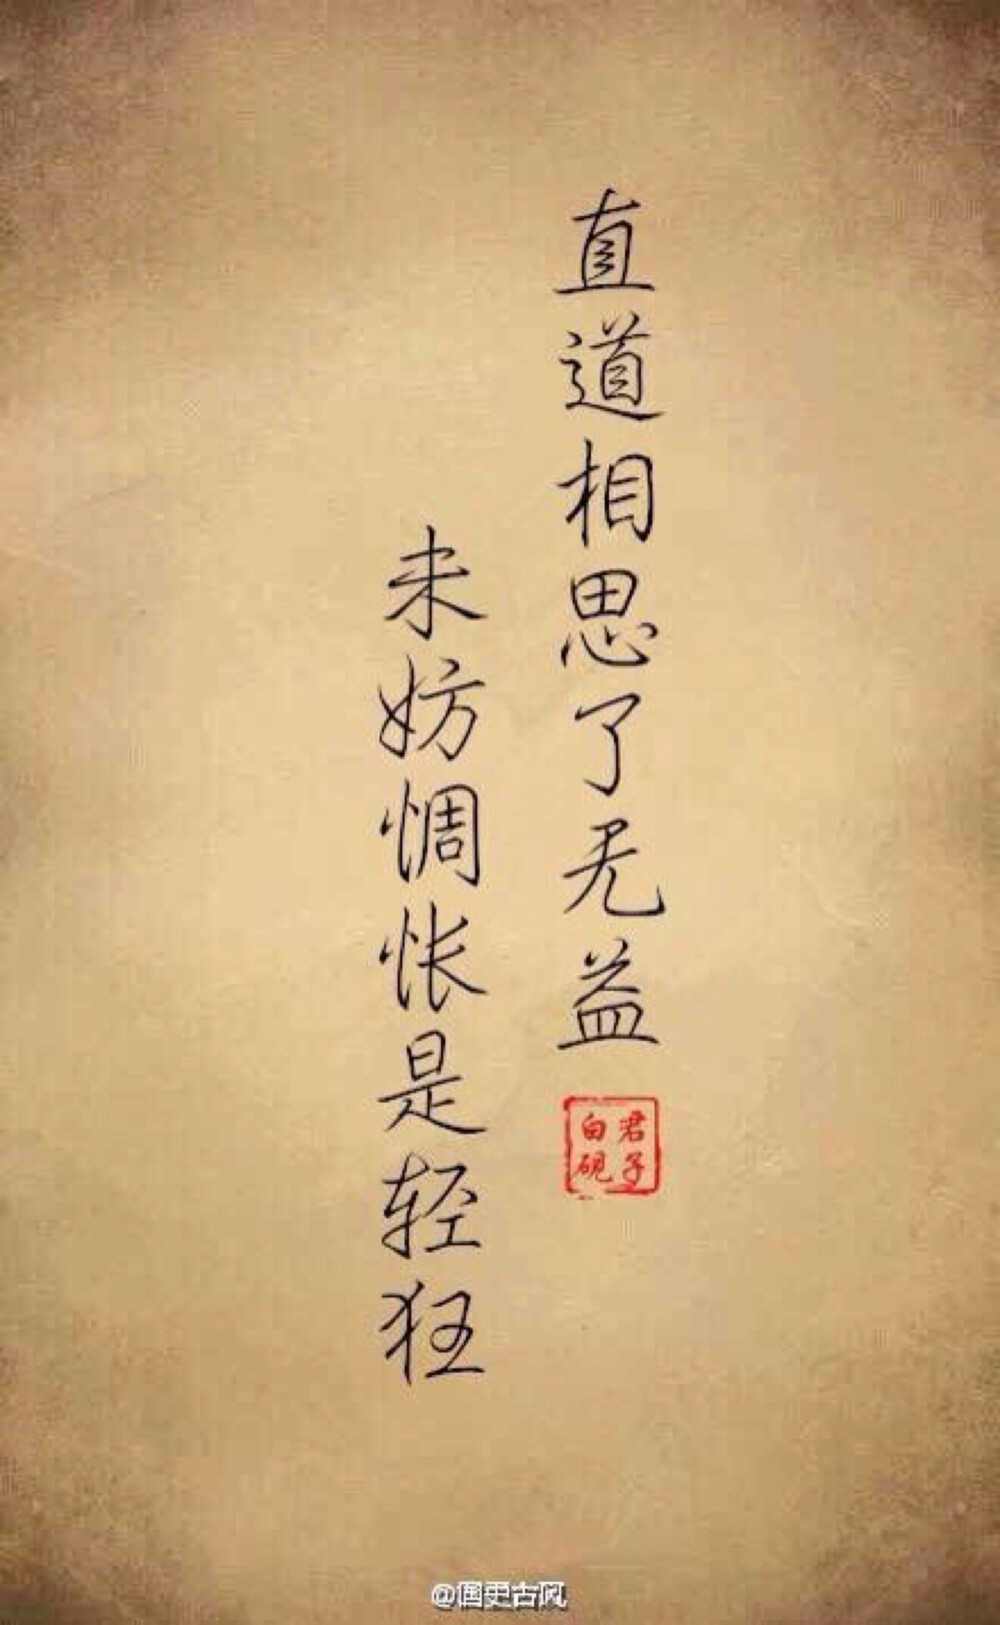 直道相思了无益
未妨惆怅是轻狂
君子
白砚
@国史古风